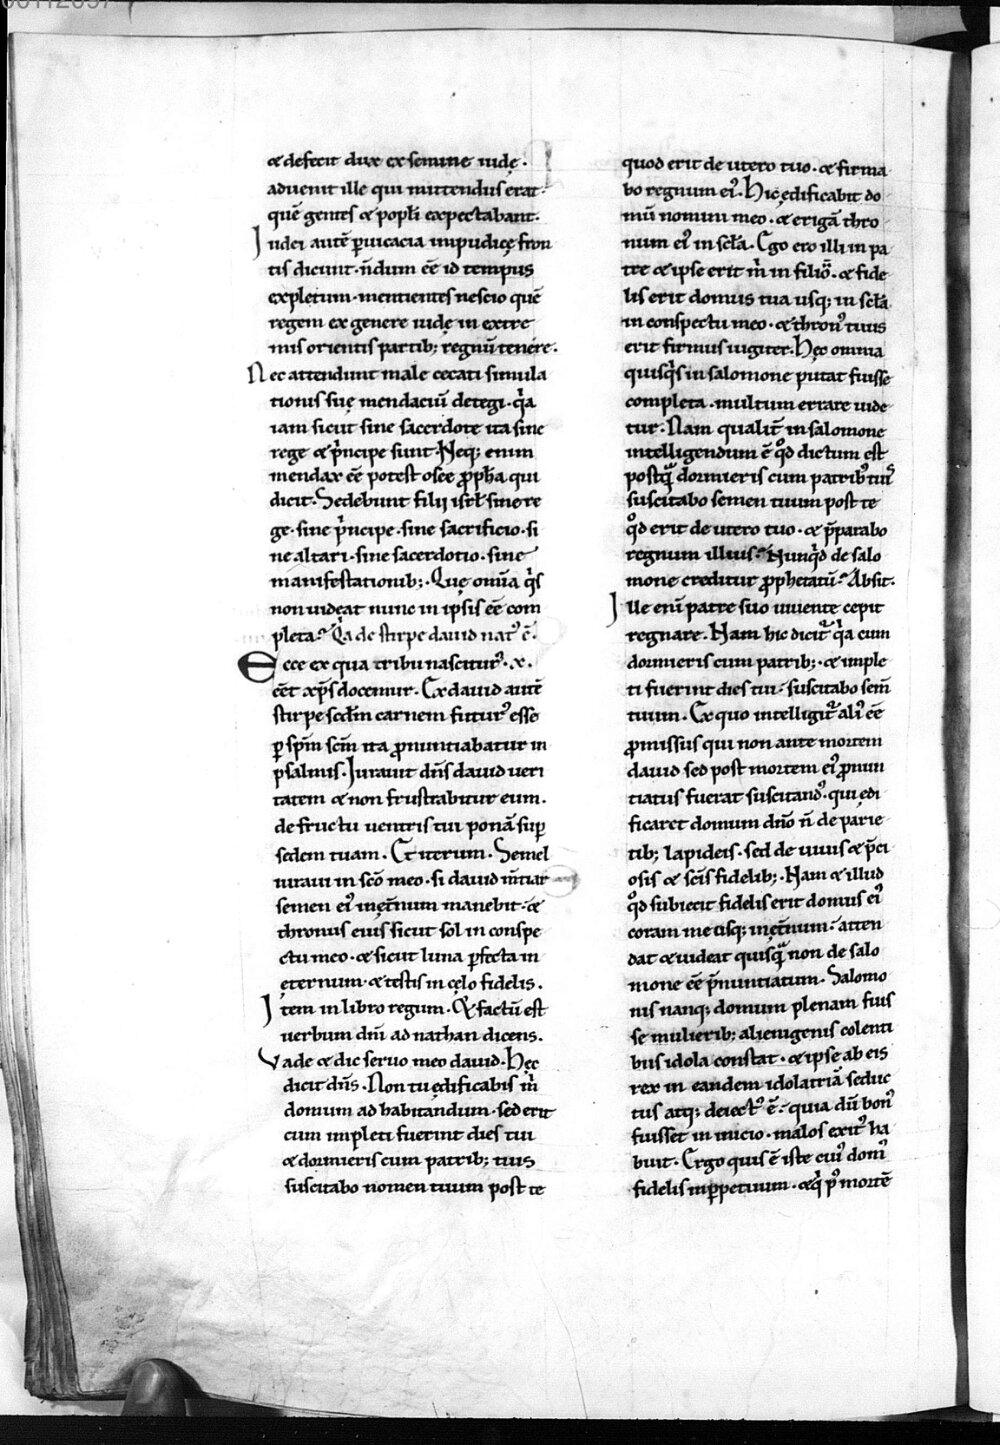 & defecit dux ex semine iudę ·
aduenit ille qui mittendus erat ·
quē gentes & popl̄i expectabant ·
Iudei autē ꝑuicacia impudicę fron
tis dicunt · n̄dum eē id tempus
expletum · mentientes nescio quē
regem ex genere iudę in extre
mis orientis partib; regnū tenere ·
Nec attendunt male cecati simula
tionis suę mendaciū detegi · qͥa
iam sicut sine sacerdote ita sine
rege & pͥncipe sunt · Neq; enim
mendax eē potest osee ꝓph̄a qui
dicit · Sedebunt filii isrl̄ sine re
ge · sine pͥncipe · sine sacrificio · si
ne altari · sine sacerdotio · sine
manifestationib; · Quę om̄ia qͥs
non uideat nunc in ipsis eē com
pleta? Qa de stirpe dauid natꝰ ē ·
Ecce ex qua tribu nasciturꝰ · x̄ ·
eēt xp̄s docemur · Ex dauid autē
stirpe scd̄m carnem futurꝰ esse
ꝑ sp̄m sc̄m ita ꝓnuntiabatur in
psalmis · Iurauit dn̄s dauid ueri
tatem & non frustrabitur eum ·
de fructu uentris tui ponā suꝑ
sedem tuam · Et iterum · Semel
iuraui in sc̄o meo · si dauid m̄tiar
semen eiꝰ inęt̄num manebit · &
thronus eius sicut sol in conspe
ctu meo · & sicut luna ꝑfecta in
ęternum · & testis in cęlo fidelis ·
Item in libro regum · Et factū est
uerbum dn̄i ad nathan dicens ·
Vade & dic seruo meo dauid · Hęc
dicit dn̄s · Non tu ędificabis m̄
domum ad habitandum · sed erit
cum impleti fuerint dies tui
& dormieris cum patrib; tuis
suscitabo nomen tuum post te
quod erit de utero tuo · & firma
bo regnum eiꝰ · Hic ędificabit do
mū nomini meo · & erigā thro
num eiꝰ in scl̄a · Ego ero illi in pa
tre & ipse erit m̄ in filiō · & fide
lis erit domus tua usq; in scl̄a
in conspectu meo · & thronꝰ tuus
erit firmus iugiter · Hęc omnia
quisqͥs in salomone putat fuisse
completa · multum errare uide
tur · Nam qualit̄ in salomone
intelligendum ē qͦd dictum est
postqͣ dormieris cum patribꝰ tuis
suscitabo semen tuum post te
qͦd erit de utero tuo · & p̄parabo
regnum illius? Nunqͥd de salo
mone creditur ꝓphetatū? Absit ·
Ille enī patre suo uiuente cepit
regnare · Nam hic dicit̄ qͥa cum
dormieris cum patrib; · & imple
ti fuerint dies tui · suscitabo sem̄
tuum · Ex quo intelligit̄ aliꝰ eē
ꝓmissus qui non ante mortem
dauid sed post mortem eiꝰ ꝓnun
tiatus fuerat suscitandꝰ · qui ędi
ficaret domum dn̄o n̄ de parie
tib; lapideis · sed de uiuis & p̄ci
osis & sc̄is fidelib; · Nam & illud
qͦd subiecit fidelis erit domus eiꝰ
coram me usq; inęt̄num · atten
dat & uideat quisqͣ non de salo
mone eē p̄nuntiatum · Salomo
nis nanq; domum plenam fuis
se mulierib; alienigenis colenti
bus idola constat · & ipse ab eis
rex in eandem idolatriā seduc
tus atq; deiectꝰ ē · quia dū bonꝰ
fuisset in inicio · malos exitꝰ ha
buit · Ergo quis ē iste cuiꝰ domꝰ
fidelis inꝑpetuum · & qͥ pꝰ mortē